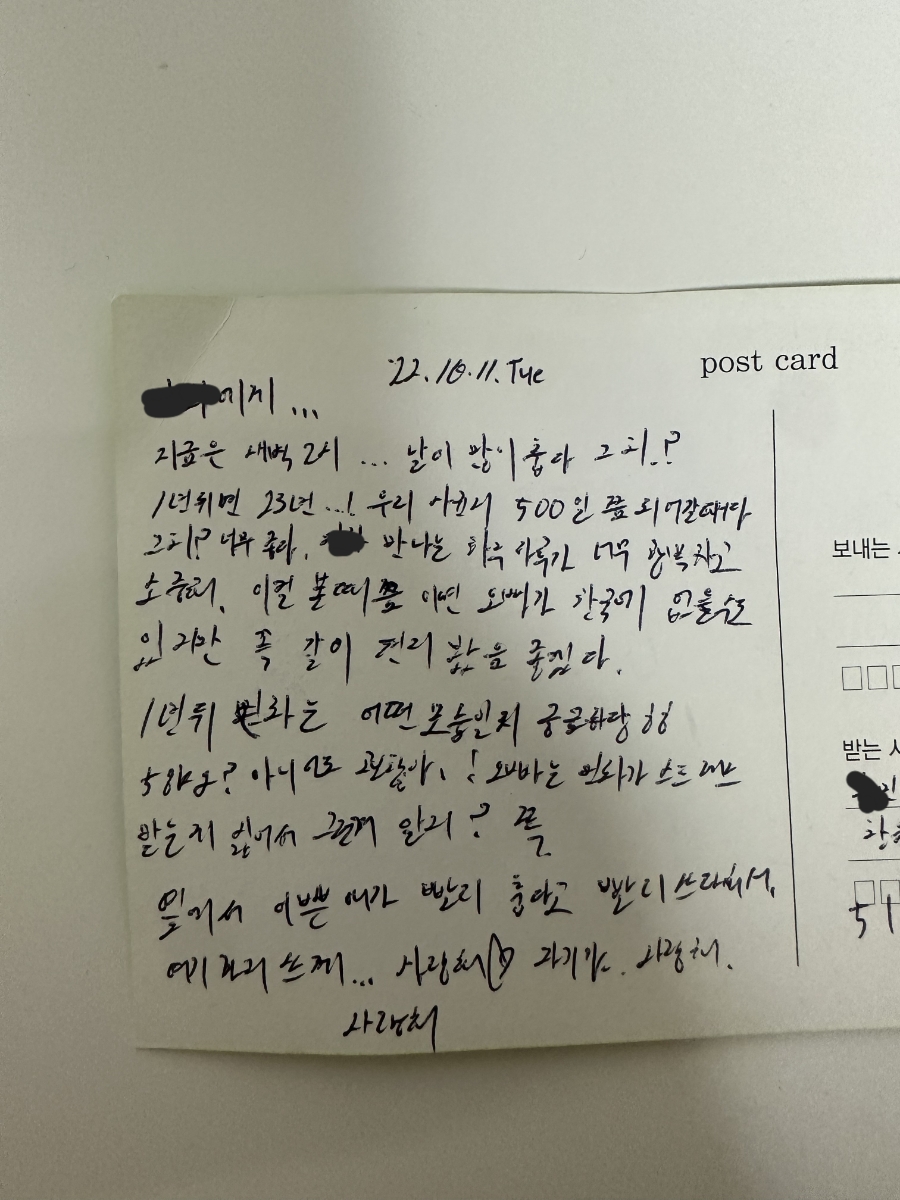 '22.10.11. Tue
post card
에게 ...
지금은 새벽 2시 ... 날이 많이 춥다 그치.?
1년뒤면 23년...! 우리 아프리 500일 쯤 되어갈때다
그치? 너무 좋다. 만나는 하루 하루가 너무 행복하고
소중해. 이걸 볼때쯤 이면 오빠가 한국에 없을수도
있지만 꼭 같이 편지 봤음 좋겠다.
1년뒤 는 어떤 모습일지 궁금하당 ㅎㅎ
아니어도 괜찮아. ! 오빠는 가 스트레스
받는지 않아서 알지? 꼭
옆에서 이쁜 애가 빨리 춥다고 빨리 쓰라해서.
여기 까지 쓰께... 사랑해♡ 자기가. 사랑해.
사랑해
보내는
받는 사